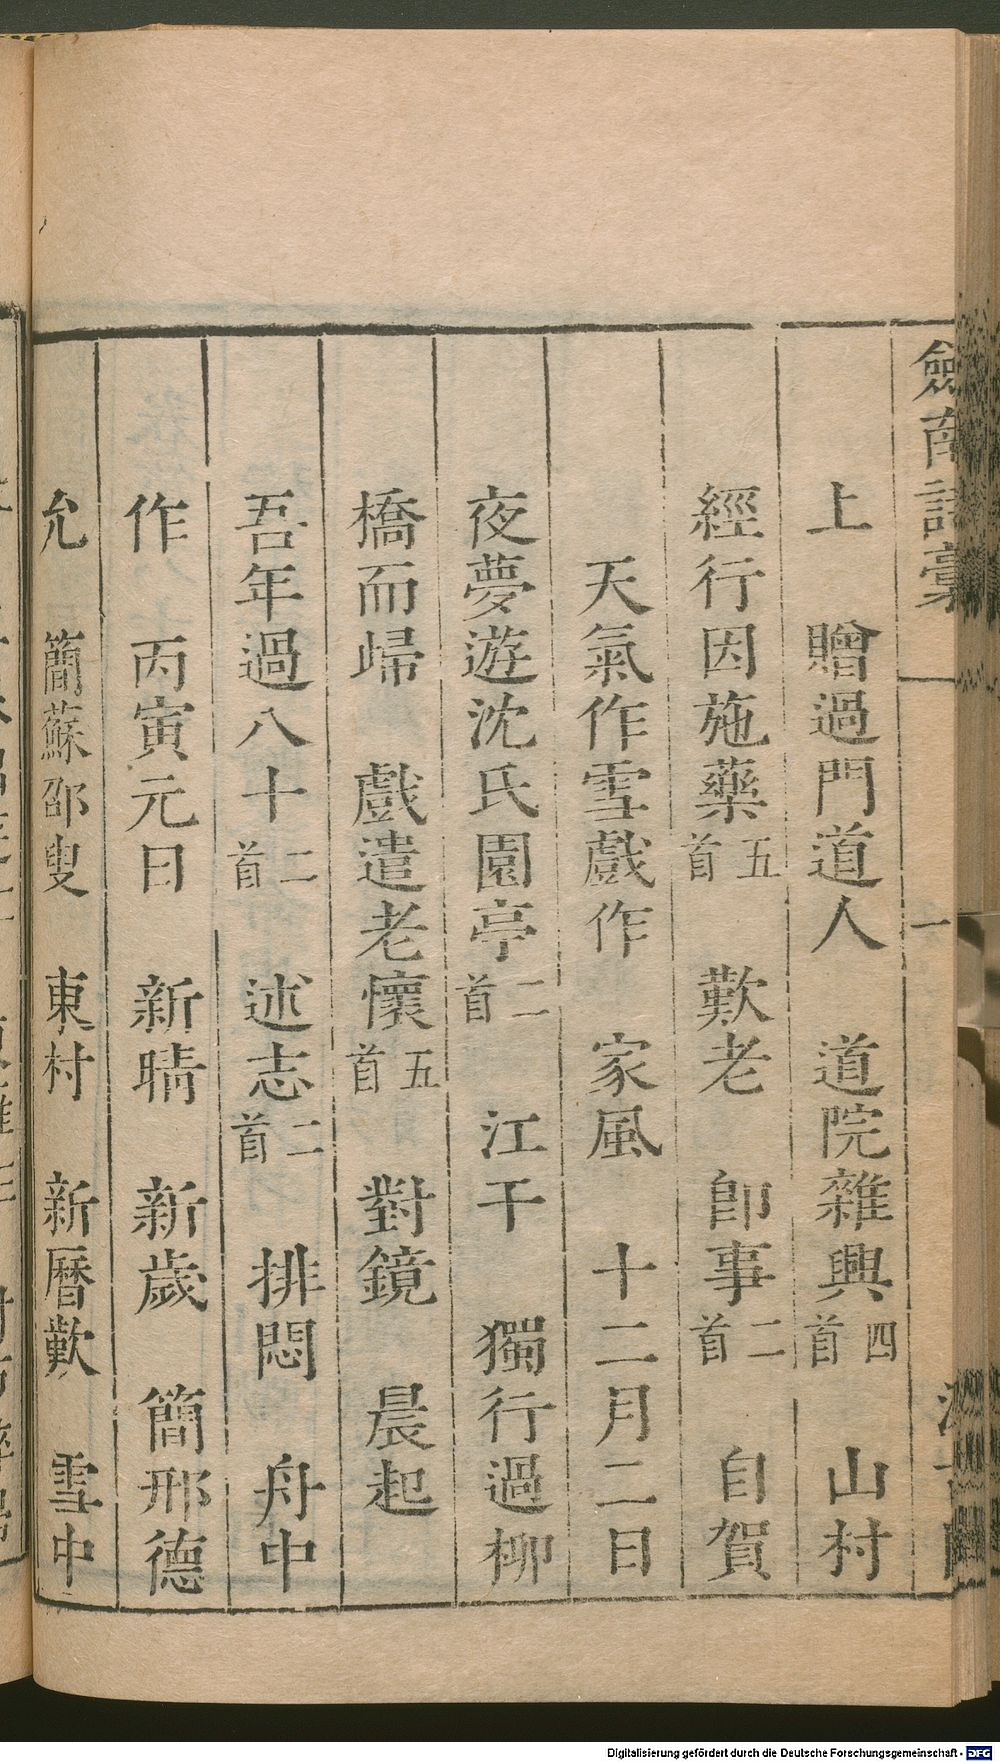 劍南詩藁　一
上　贈過門道人　道院雜興四首　山村
經行因施藥五首　歎老　卽事二首　自賀
天氣作雪戲作　家風　十二月二日
夜夢遊沈氏園亭二首　江干　獨行過柳
橋而歸　戲遣老懷五首　對鏡　晨起
吾年過八十二首　述志二首　排悶　舟中
作　丙寅元日　新晴　新歲　簡邢德
允　簡蘇邵叟　東村　新曆歎　雪中
Digitalisierung gefördert durch die Deutsche Forschungsgemeinschaft - DFG